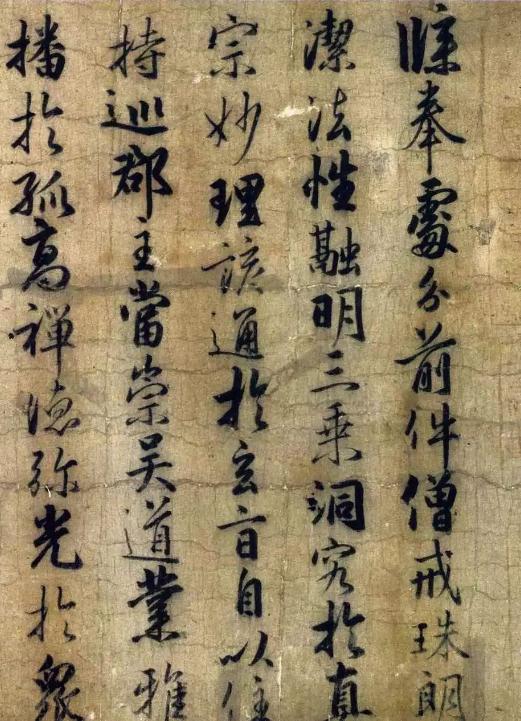 牒奉處分前件僧戒珠朗
潔法性融明三乘洞究於真
宗妙理該通於玄旨自以住
持巡郡主當崇吴道業雅
播於孤高禪德弥光於衆